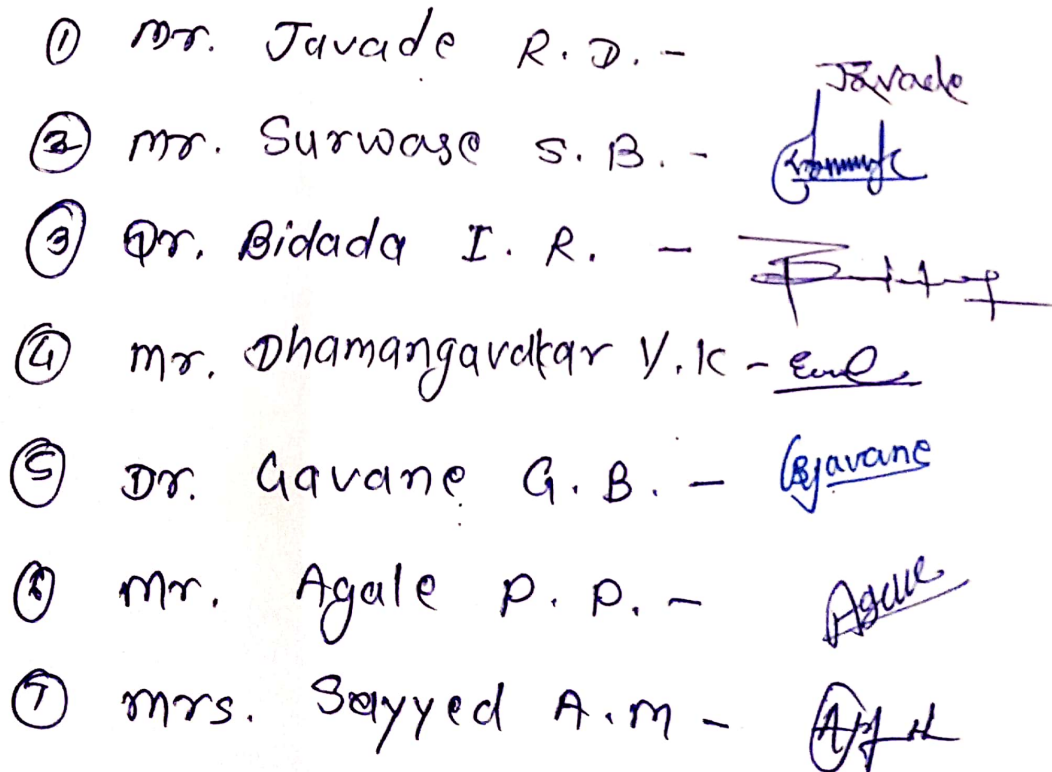 ① Mr. Javade R. D. - Javade
② Mr. Surwase S. B. -
③ Dr. Bidada I. R. -
④ Mr. Dhamangavakar V. K -
⑤ Dr. Gavane G. B. - Gavane
⑥ Mr. Agale P. P. - Agale
⑦ Mrs. Sayyed A. M -